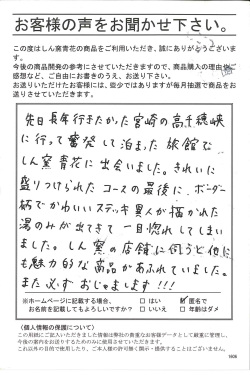 お客様の声をお聞かせ下さい。
この度はしん窯青花の商品をご利用いただき、誠にありがとうございます。
今後の商品開発の参考にさせていただきますので、商品購入の理由、ご感想など、ご自由にお書きのうえ、お送り下さい。
お送りいただけたお客様には、些少ではありますが毎月抽選で商品をお送りさせていただきます。
先日長年行きたかった宮崎の高千穂峡
に行って奮発して泊まった旅館で
しん窯青花に出会いました。きれいに
盛りつけられたコースの最後に、ボーダー
柄でかわいいステッキ異人が描かれた
湯のみが出てきて一目惚れしてしまい
ました。しん窯の店舗に伺うと他に
も魅力的な商品があふれていました。
また必ずおじゃまします!!!
※ホームページに記載する場合、 □ はい □ 匿名で
お名前を記載してもよろしいですか? □ いいえ □ 年齢はダメ
〈個人情報の保護について〉
この用紙にご記入いただきました情報は弊社の貴重なお客様データとして厳重に管理し、
今後の案内をお送りするためのみに使用させていただきます。
これ以外の目的で使用したり、ご本人様の許可無く開示・提供することはございません。